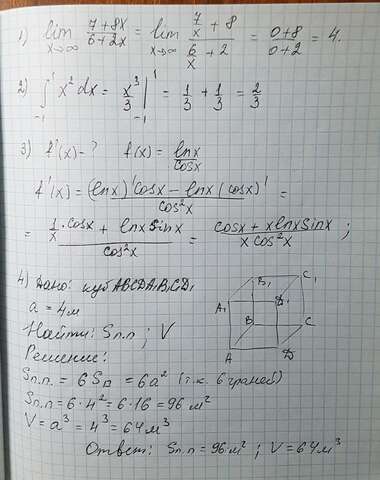 1) lim x→∞ (7+8x)/(6+2x) = lim x→∞ (7/x + 8)/(6/x + 2) = (0+8)/(0+2) = 4.
2) ∫₋₁¹ x² dx = x³/3 |₋₁¹ = 1/3 + 1/3 = 2/3
3) f'(x) - ? f(x) = lnx/cosx
f'(x) = ((lnx)'cosx - lnx(cosx)')/cos²x =
= (1/x · cosx + lnx sinx)/cos²x = (cosx + x lnx sinx)/(x cos²x) ;
4) Дано: куб ABCDA₁B₁C₁D₁
a = 4м
Найти: Sп.п ; V
Решение:
Sп.п. = 6S□ = 6a² (т.к. 6 граней)
Sп.п = 6·4² = 6·16 = 96 м²
V = a³ = 4³ = 64 м³
Ответ: Sп.п = 96 м² ; V = 64 м³
B₁ C₁
A₁ D₁
B C
A D